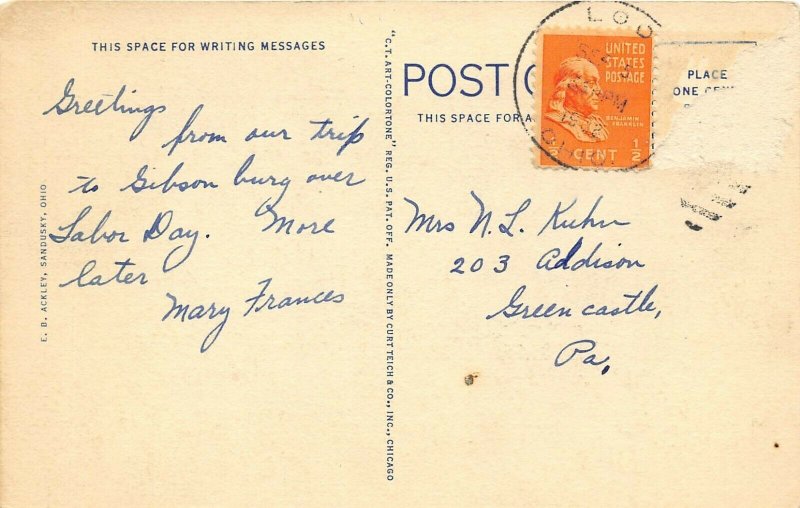 THIS SPACE FOR WRITING MESSAGES
Greetings
from our trip
to Gibson burg over
Labor Day. More
later
Mary Frances
E. B. ACKLEY, SANDUSKY, OHIO
"C.T. ART-COLORTONE" REG. U.S. PAT. OFF. MADE ONLY BY CURT TEICH & CO., INC., CHICAGO
POST
THIS SPACE FOR
PLACE
ONE
LOD
PM
OHIO
UNITED
STATES
POSTAGE
BENJAMIN
FRANKLIN
CENT 1/2
Mrs N. L. Kuhn
203 Addison
Green castle,
Pa,